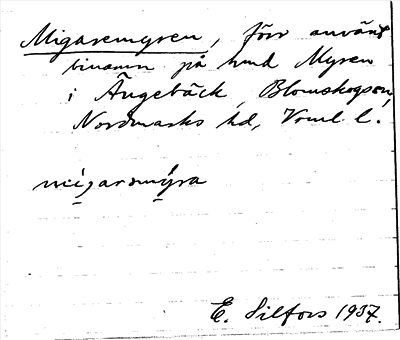 Migaremyren, förr använt
binamn på hmd Myren
i Ängebäck, Blomskogs sn,
Nordmarks hd, Vrml. l.
mìgarsmýra
E. Silfors 1937.